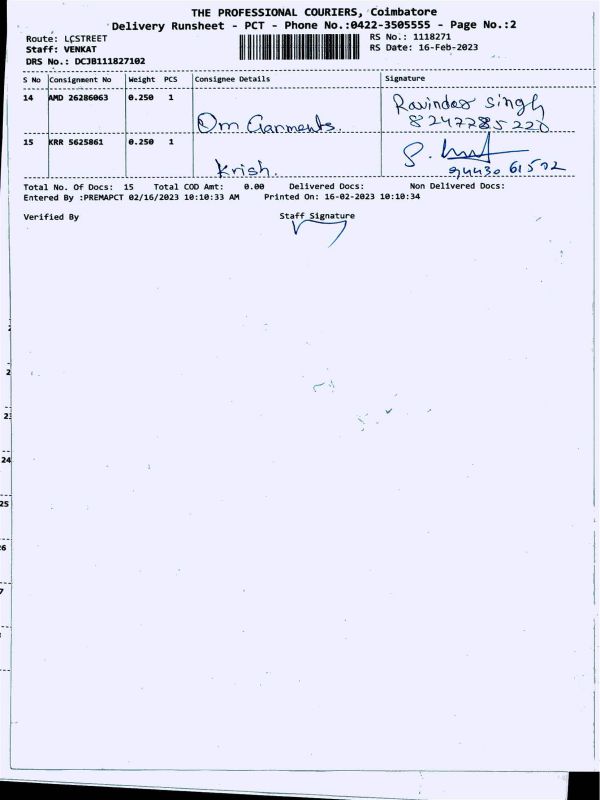 THE PROFESSIONAL COURIERS, Coimbatore
Delivery Runsheet - PCT - Phone No.:0422-3505555 - Page No.:2
Route: LCSTREET
RS No.: 1118271
Staff: VENKAT
RS Date: 16-Feb-2023
DRS No.: DCJB111827102
S No Consignment No Weight PCS Consignee Details Signature
14 AMD 26286063 0.250 1 Om Garments. Ravinder Singh
8247785220
15 KRR 5625861 0.250 1 Krish. S.
94430 61502
Total No. Of Docs: 15 Total COD Amt: 0.00 Delivered Docs: Non Delivered Docs:
Entered By :PREMAPCT 02/16/2023 10:10:33 AM Printed On: 16-02-2023 10:10:34
Verified By Staff Signature
2
23
24
25